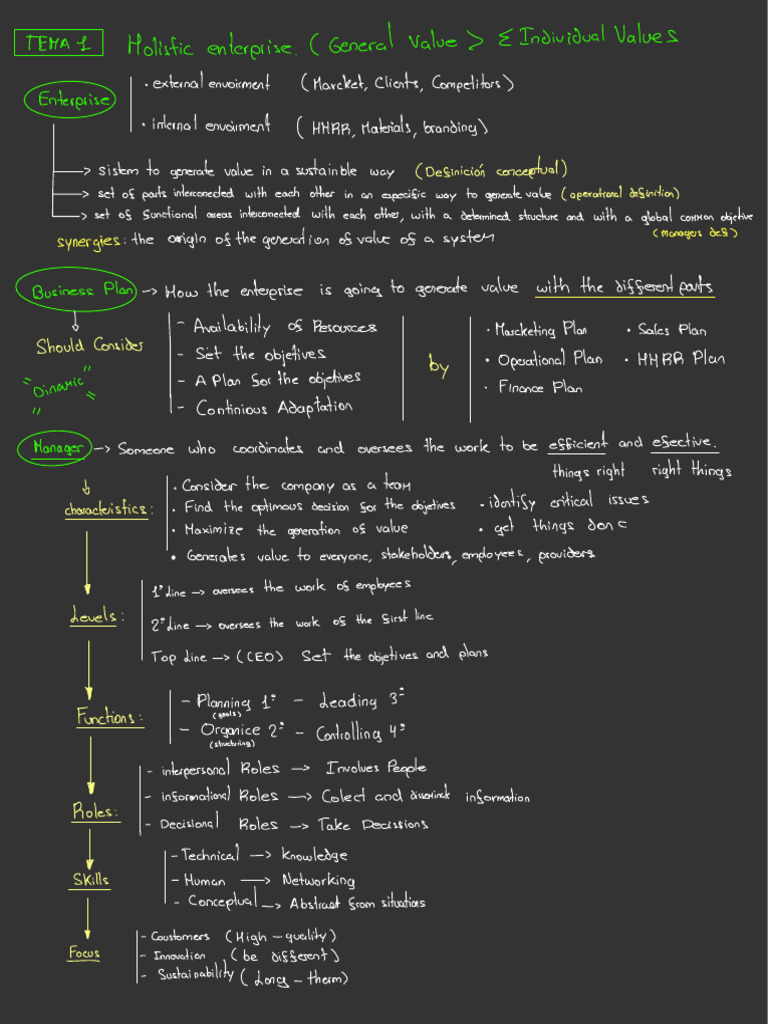 TEMA 1 Holistic enterprise. (General Value > Σ Individual Values
Enterprise
· external envoirment (Marcket, Clients, Competitors)
· internal envoirment (HHRR, Materials, branding)
→ sistem to generate value in a sustainble way (Definición conceptual)
→ set of parts interconnected with each other in an especific way to generate value (operational definition)
→ set of functional areas interconnected with each other, with a determined structure and with a global common objetive
(managers def)
synergies: the origin of the generation of value of a system
Business Plan → How the enterprise is going to generate value with the different parts
Should Consider
"Dinamic"
- Availability of Resources
- Set the objetives
- A Plan for the objetives
- Continious Adaptation
by
· Marcketing Plan · Sales Plan
· Operational Plan · HHRR Plan
· Finance Plan
Manager → Someone who coordinates and oversees the work to be efficient and efective.
things right right things
characteristics:
· Consider the company as a team
· Find the optimous decision for the objetives · identify critical issues
· Maximize the generation of value · get things done
· Generates value to everyone, stakeholders, employees, providers
Levels:
1º Line → oversees the work of employees
2º Line → oversees the work of the first line
Top Line → (CEO) Set the objetives and plans
Functions:
- Planning 1º - Leading 3º
(goals)
- Organice 2º - Controlling 4º
(structuring)
Roles:
- interpersonal Roles → Involves People
- informational Roles → Colect and information
- Decisional Roles → Take Decissions
Skills
- Technical → Knowledge
- Human → Networking
- Conceptual → Abstract from situations
Focus
- Coustomers (High - quality)
- Innovation (be different)
- Sustainability (Long - therm)